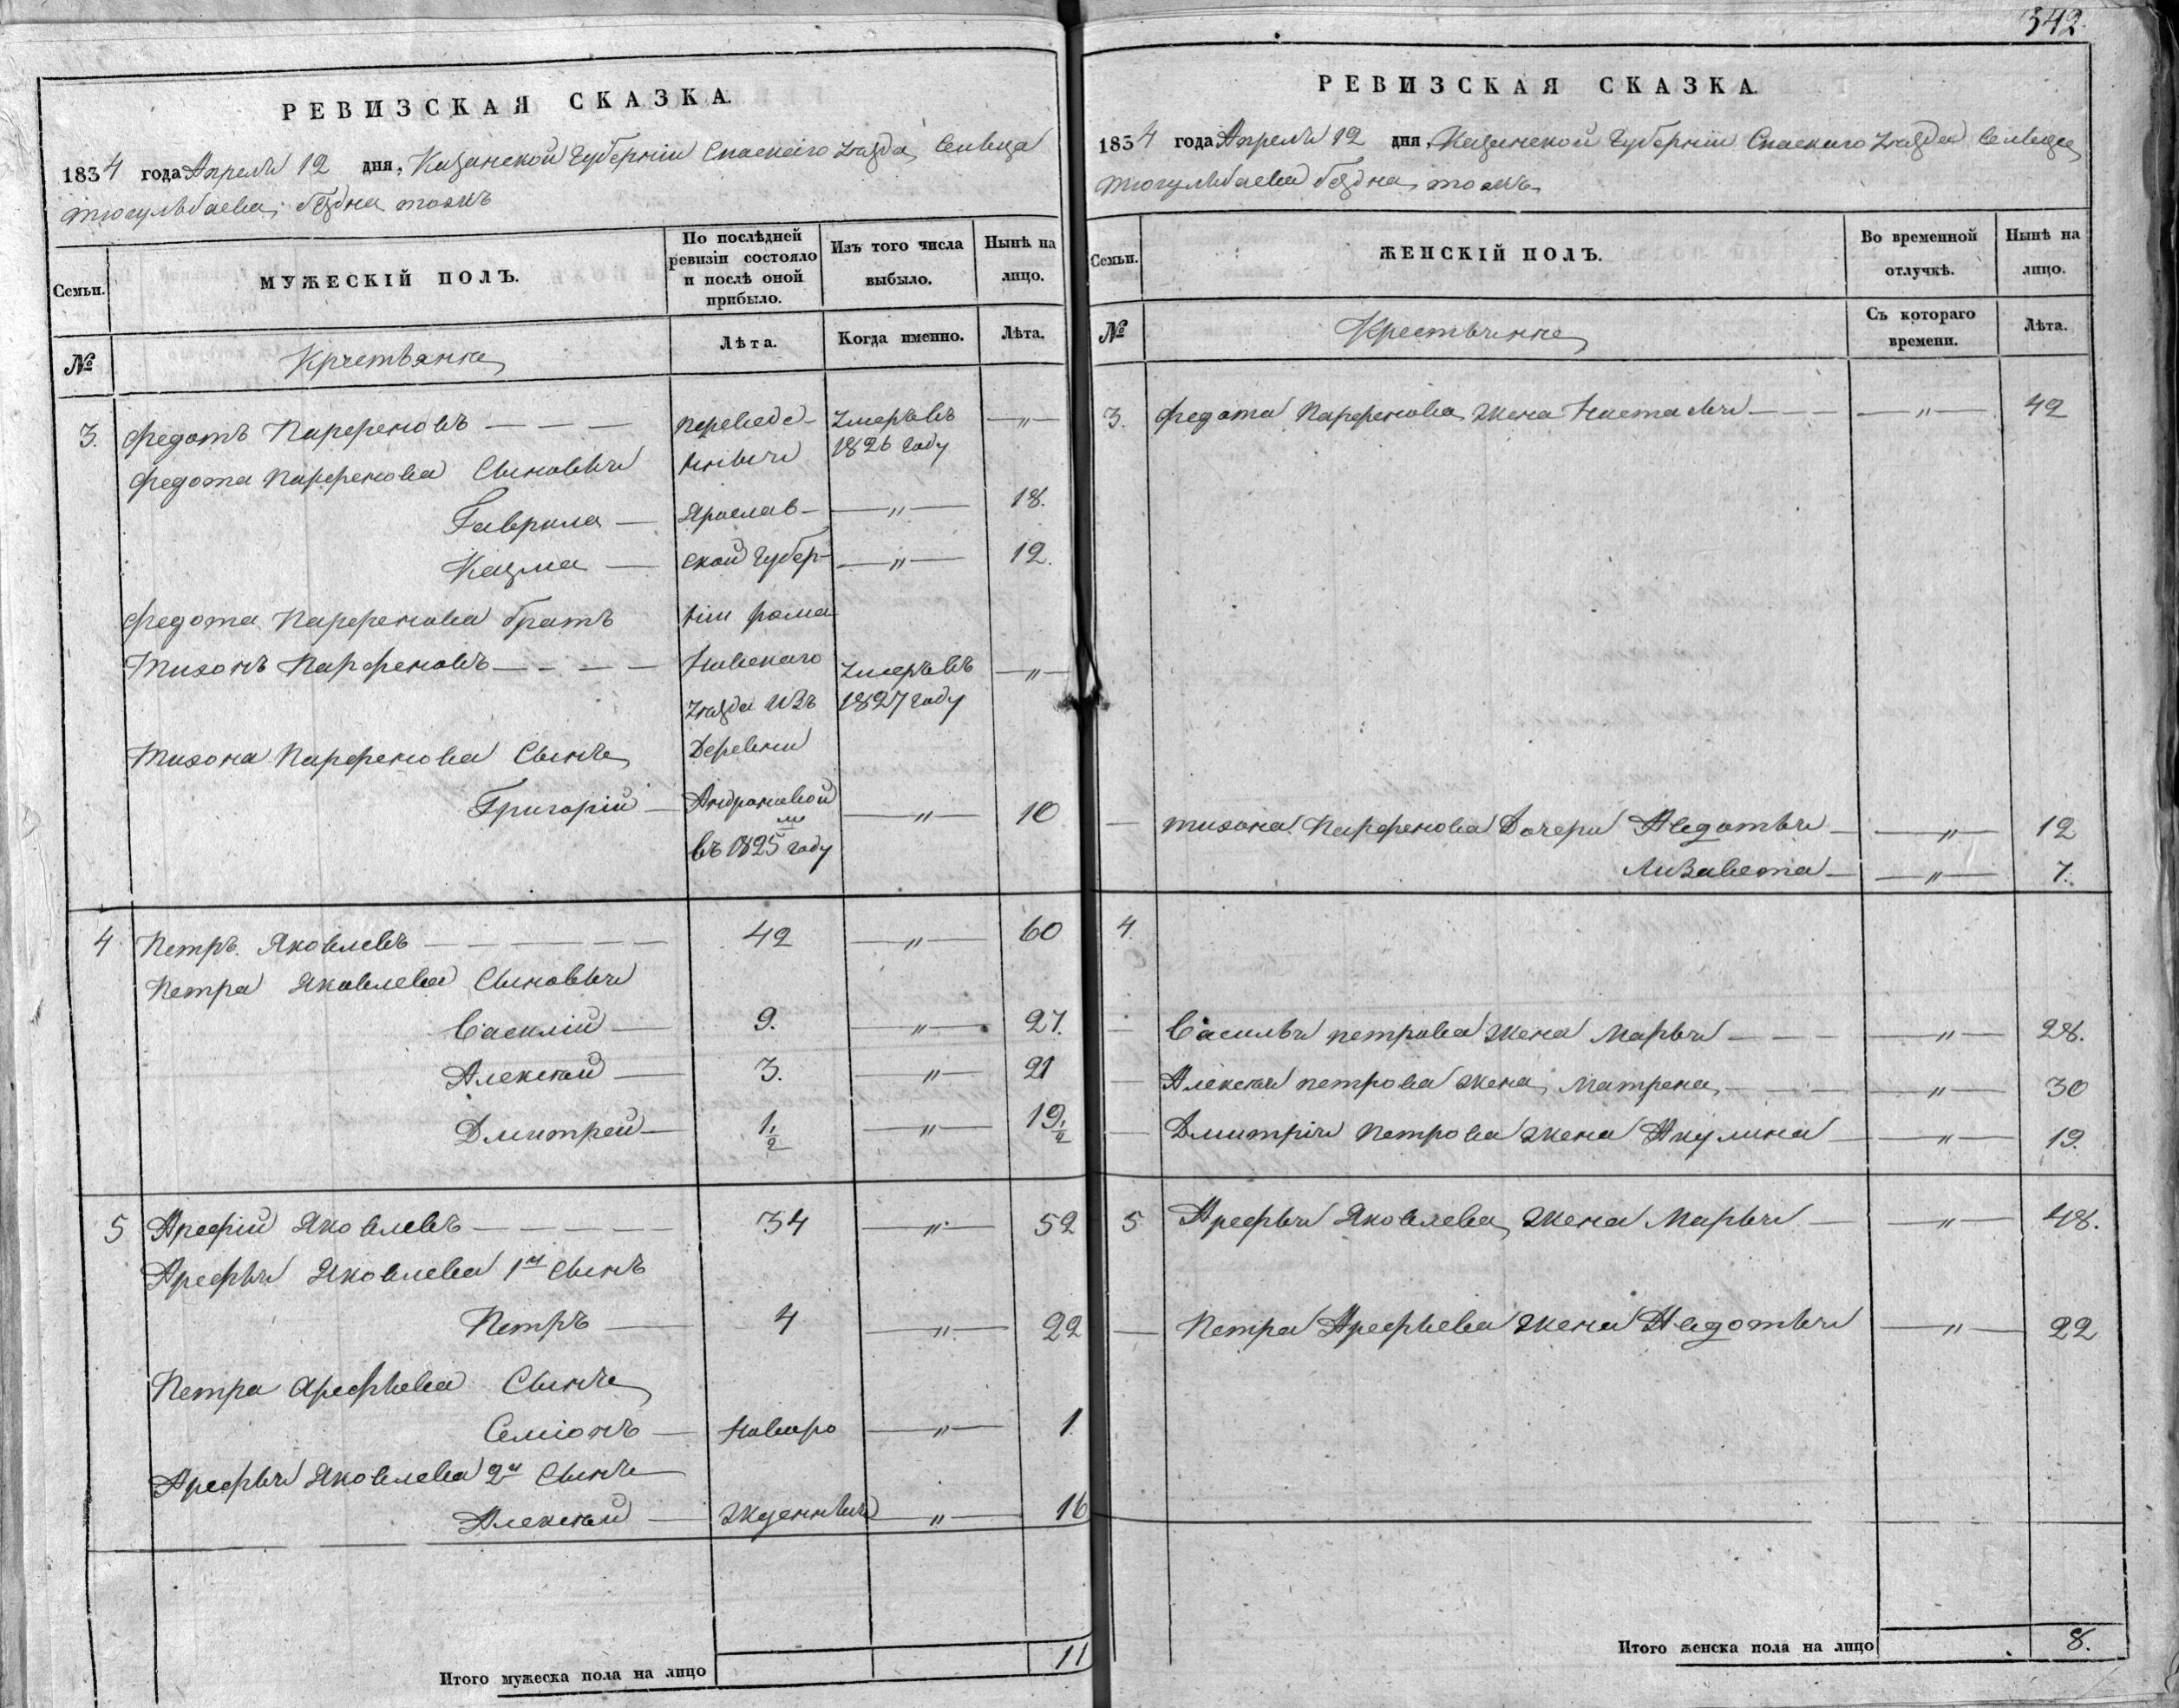 342.
РЕВИЗСКАЯ СКАЗКА.
1834 года Апреля 12 дня, Казанской Губернiи Спаскаго уѣзда, Сельца
Тюгульбаева, бѣздна тожъ
Семьи. МУЖЕСКIЙ ПОЛЪ. По послѣдней ревизiи состояло и послѣ оной прибыло. Изъ того числа выбыло. Нынѣ на лицо.
№ Крестьяне Лѣта. Когда именно. Лѣта.
3. Федотъ Парфеновъ — — — переведе- умеръ въ —„—
Федота Парфенова Сыновья нныи 1826 году
Гаврила — Ярослав- —„— 18.
Казма — ской губер- —„— 12.
Федота Парфенова братъ нiи Рома
Тихонъ Парфеновъ — — — — новскаго умеръ въ —„—
уѣзда изъ 1827 году
Тихона Парфенова Сынъ Деревни
Григорiй — Андроновой —„— 10
въ 1825 м году
4 Петръ Яковлевъ — — — — — 42 —„— 60
Петра Яковлева Сыновья
Василiй — 9. —„— 27.
Алексѣй — 3. —„— 21
Дмитрей — 1 1/2 —„— 19 1/2
5 Арефiй Яковлевъ — — — — 34 —„— 52
Арефья Яковлева 1й сынъ
Петръ — 4 —„— 22
Петра Арефьева Сынъ
Семiонъ — новоро —„— 1
Арефья Яковлева 2й Сынъ
Алексѣй — жденныи —„— 16
Итого мужеска пола на лицо 11
РЕВИЗСКАЯ СКАЗКА.
1834 года Апреля 12 дня, Казанской Губернiи Спаскаго уѣзда Сельца
Тюгульбаева бѣздна тожъ
Семьи. ЖЕНСКIЙ ПОЛЪ. Во временной отлучкѣ. Нынѣ на лицо.
№ Крестьяне Съ котораго времени. Лѣта.
3. Федота Парфенова жена Настасья — — —„— 42
— Тихона Парфенова Дочери Авдотья — —„— 12
Лизавета — —„— 7.
4.
— Василья петрова жена Марья — — — —„— 28.
— Алексѣя петрова жена Матрена — —„— 30
— Дмитрiя Петрова жена Акулина — —„— 19.
5 Арефья Яковлева жена Марья — —„— 48.
— Петра Арефьева жена Авдотья —„— 22
Итого женска пола на лицо 8.